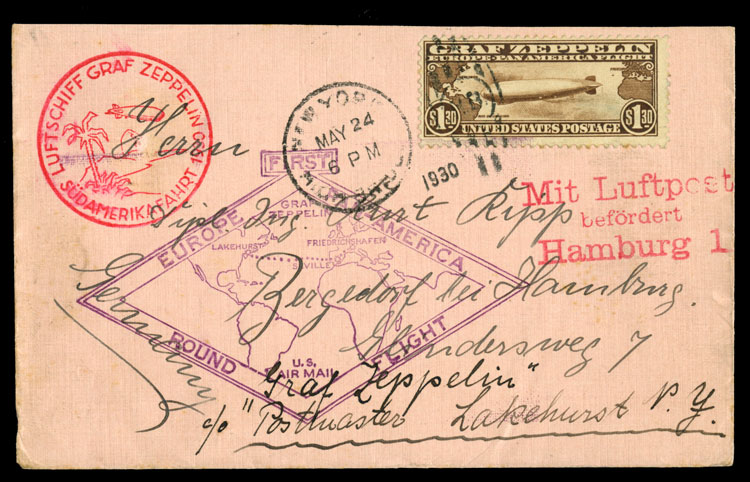 GRAF ZEPPELIN
EUROPE-PAN AMERICA FLIGHT
$1.30 $1.30
UNITED STATES POSTAGE
LUFTSCHIFF GRAF ZEPPELIN
SÜDAMERIKAFAHRT 1930
NEW YORK
MAY 24
6 PM
1930
Mit Luftpost
befördert
Hamburg 1
FIRST
EUROPE AMERICA
GRAF
ZEPPELIN
LAKEHURST
FRIEDRICHSHAFEN
SEVILLE
ROUND FLIGHT
U.S.
AIR MAIL
Herrn
Dipl. Ing. Kurt Ripp
Bergedorf bei Hamburg.
7
Germany
"Graf Zeppelin"
c/o Postmaster Lakehurst N.Y.